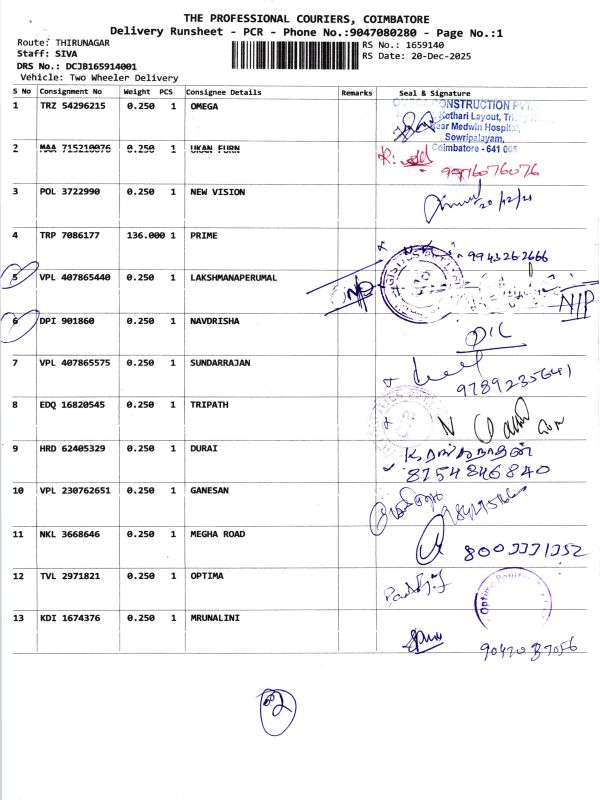 THE PROFESSIONAL COURIERS, COIMBATORE
Delivery Runsheet - PCR - Phone No.:9047080280 - Page No.:1
Route: THIRUNAGAR
Staff: SIVA
DRS No.: DCJB165914001
Vehicle: Two Wheeler Delivery
RS No.: 1659140
RS Date: 20-Dec-2025
S No Consignment No Weight PCS Consignee Details Remarks Seal & Signature
1 TRZ 54296215 0.250 1 OMEGA
CONSTRUCTION PVT
Kothari Layout,
Near Medwin Hospital,
Sowripalayam,
Coimbatore - 641 005
2 MAA 715210076 0.250 1 UKAN FURN
9976076076
3 POL 3722990 0.250 1 NEW VISION
20/12/21
4 TRP 7086177 136.000 1 PRIME
9943262666
5 VPL 407865440 0.250 1 LAKSHMANAPERUMAL
N/P
N/P
6 DPI 901860 0.250 1 NAVDRISHA
D/C
7 VPL 407865575 0.250 1 SUNDARRAJAN
9789235641
8 EDQ 16820545 0.250 1 TRIPATH
9 HRD 62405329 0.250 1 DURAI
8754846840
10 VPL 230762651 0.250 1 GANESAN
11 NKL 3668646 0.250 1 MEGHA ROAD
12 TVL 2971821 0.250 1 OPTIMA
13 KDI 1674376 0.250 1 MRUNALINI
2